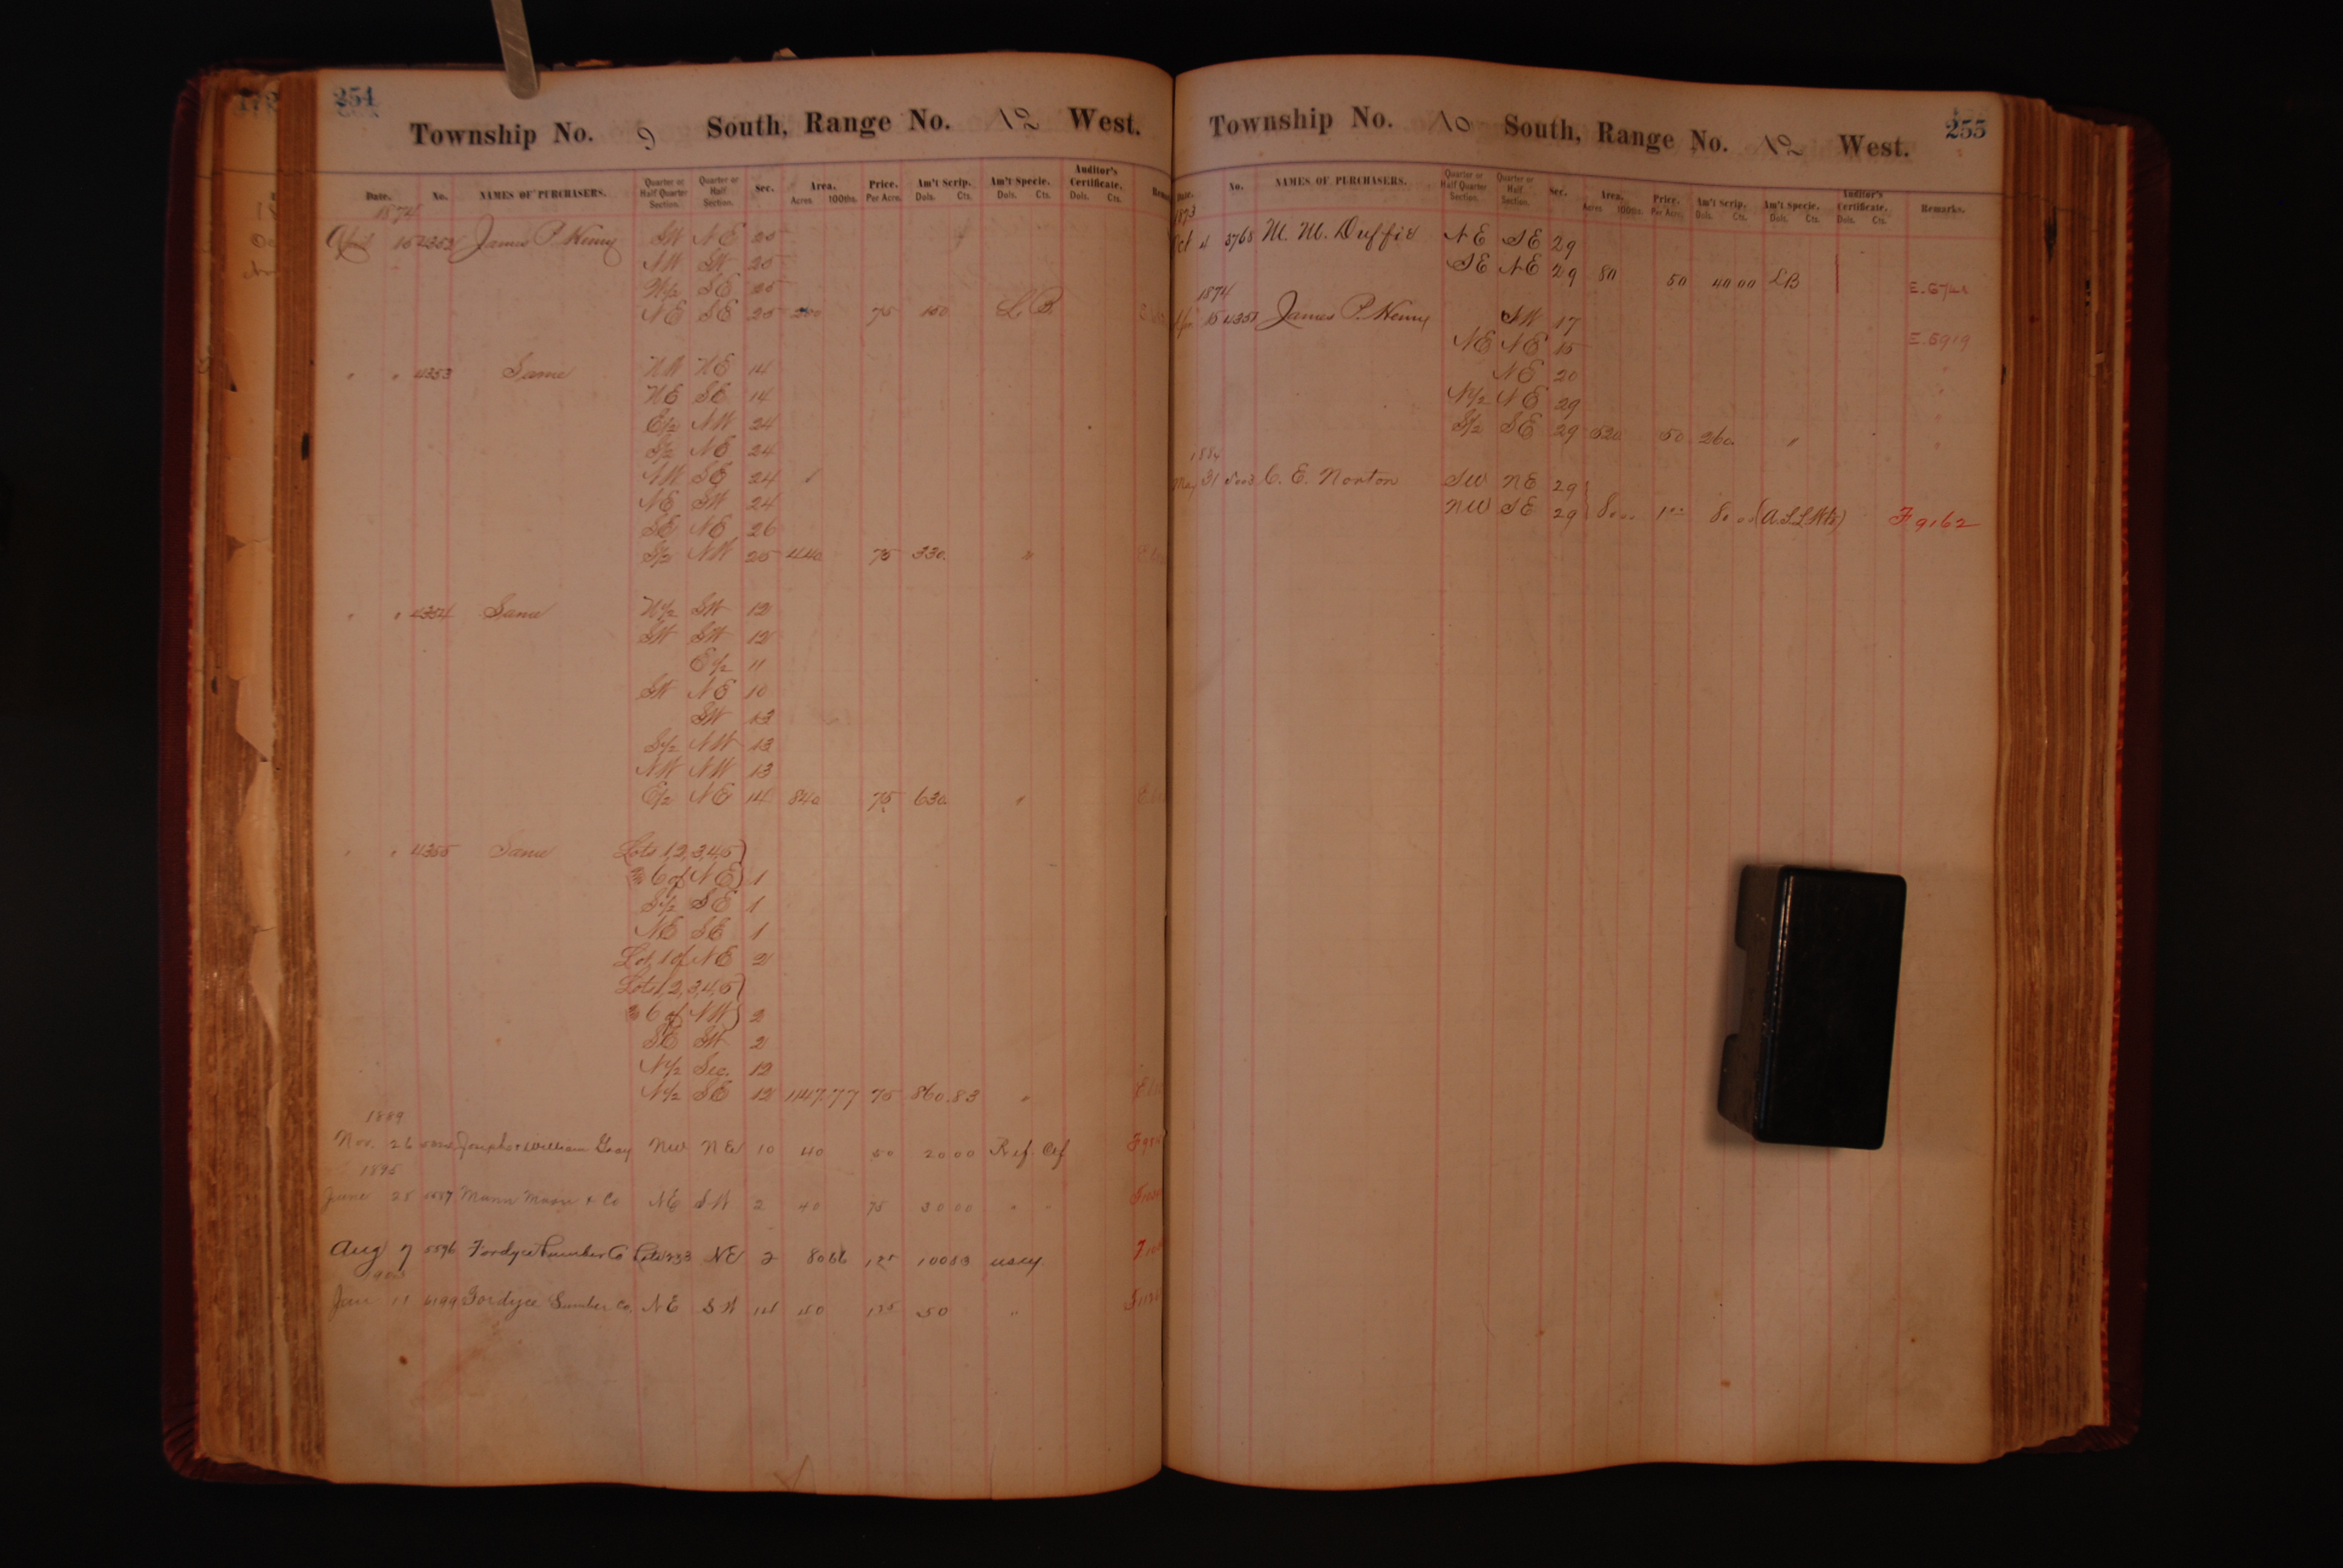 254
Township No. 9 South, Range No. 12 West.
Date. No. NAMES OF PURCHASERS. Quarter or Half Quarter Section. Quarter or Half Section. Sec. Area. Acres 100ths. Price. Per Acre. Am't Scrip. Dols. Cts. Am't Specie. Dols. Cts. Auditor's Certificate. Dols. Cts.
1874
April 15 4352 James P. Henry SW NE 25
NW SW 25
W½ SE 25
NE SE 25 200 75 150 L. B.
" " 4353 Same NW NE 14
NE SE 14
E½ NW 24
S½ NE 24
NW SE 24
NE SW 24
SE NE 26
S½ NW 25 440 75 330. "
" " 4354 Same N½ SW 12
SW SW 12
E½ 11
SW NE 10
SW 13
S½ NW 13
NW NW 13
E½ NE 14 840 75 630. "
" " 4355 Same Lots 1,2,3,4,5
& 6 of NE 1
S½ SE 1
NE SE 1
Lot 1 of NE 2
Lots 1,2,3,4,5
& 6 of NW 2
SE SW 2
N½ Sec. 12
N½ SE 12 1147.77 75 860.83 "
1889
Nov. 26 Joseph & William Gray NW NE 10 40 50 20 00 Ref. Ctf
1895
June 25 Mann Moon & Co NE SW 2 40 75 30 00 " "
Aug 7 5596 Fordyce Lumber Co Lots 2 & 3 NE 2 80 66 1 25 100 83
Jan 11 6199 Fordyce Lumber Co. NE SW 14 40 1 25 50 "
255
Township No. 10 South, Range No. 12 West.
Date. No. NAMES OF PURCHASERS. Quarter or Half Quarter Section. Quarter or Half Section. Sec. Area. Acres 100ths. Price. Per Acre. Am't Scrip. Dols. Cts. Am't Specie. Dols. Cts. Auditor's Certificate. Dols. Cts. Remarks.
1873
Oct 4 3768 M. M. Duffie NE SE 29
SE NE 29 80 50 40 00 LB
1874
Apr 15 4351 James P. Henry SW 17
NE NE 15 E.5919
NE 20 "
N½ NE 29 "
S½ SE 29 520 50 260. " "
1884
May 31 C. E. Norton SW NE 29
NW SE 29 80 00 1 00 80 00 F 9162